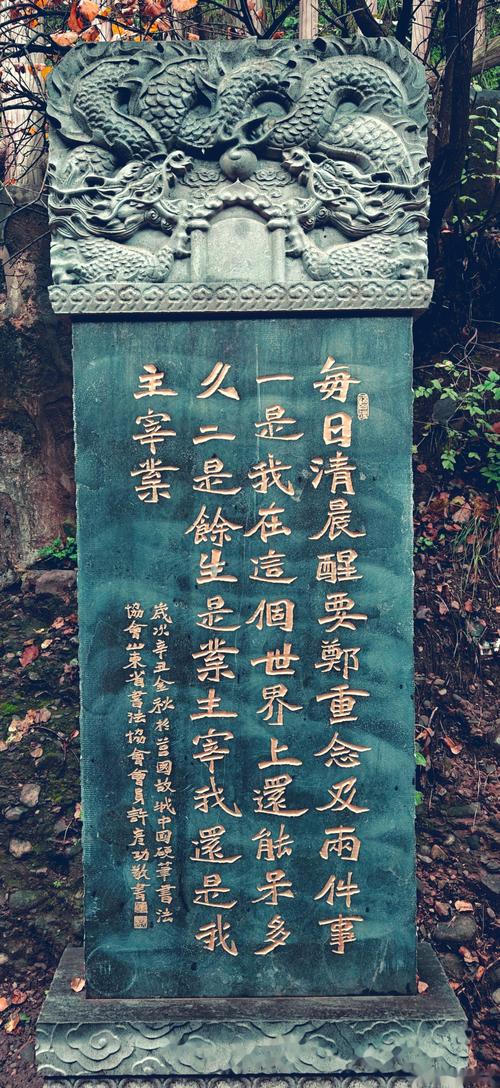 每日清晨醒要鄭重念及兩件事
一是我在這個世界上還能呆多
久二是餘生是業主宰我還是我
主宰業
歲次辛丑金秋於莒國故城中國硬筆書法
協會山東省書法協會會員許彥功敬書